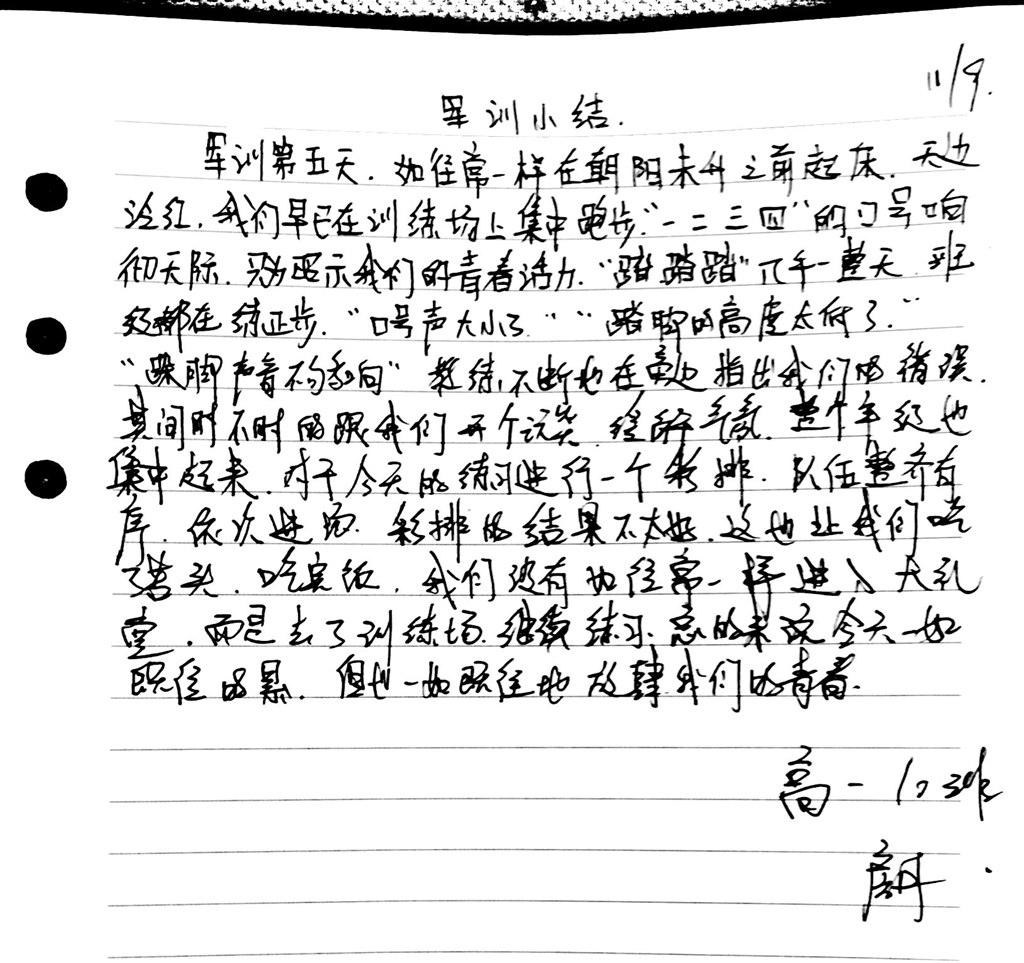 11/9.
军训小结.
军训第五天.如往常一样在朝阳未升之前起床.天边
泛红.我们早已在训练场上集中跑步."一二三四"的口号响
彻天际.显示我们的青春活力."踏踏踏"几乎一整天.班
级都在练正步."口号声太小了.""踏脚的高度太低了."
"跺脚声音不够响"教练不断地在旁边指出我们的错误.
其间时不时的跟我们开个玩笑.缓解气氛.整个年级也
集中起来.对于今天的练习进行一个彩排.队伍整齐有
序.依次进场.彩排的结果不太好.这也让我们吃
了苦头.吃完饭.我们没有如往常一样进入大礼
堂.而是去了训练场.继续练习.总的来说今天一如
既往的累.但也一如既往地放肆我们的青春.
高一 班